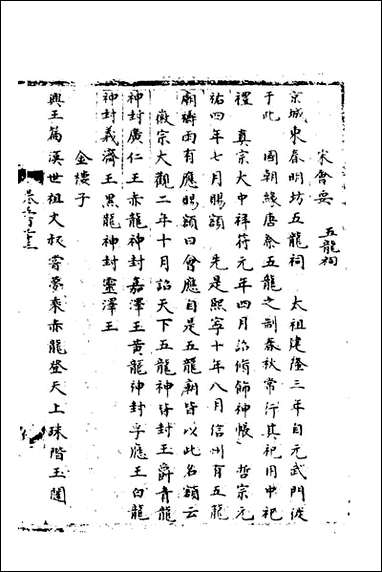 宋會要　五龍祠
京城東春明坊五龍祠　太祖建隆三年自元武門徙
于此　國朝緣唐祭五龍之制春秋常行其祀用中祀
禮　真宗大中祥符元年四月詔脩飾神帳　哲宗元
祐四年七月賜額　先是熙寧十年八月信州有五龍
廟禱雨有應賜額曰會應自是五龍廟皆以此名額云
徽宗大觀二年十月詔天下五龍神皆封王爵青龍
神封廣仁王赤龍神封嘉澤王黃龍神封孚應王白龍
神封義濟王黑龍神封靈澤王
金樓子
興王篇漢世祖文叔嘗夢乘赤龍登天上珠階玉闥